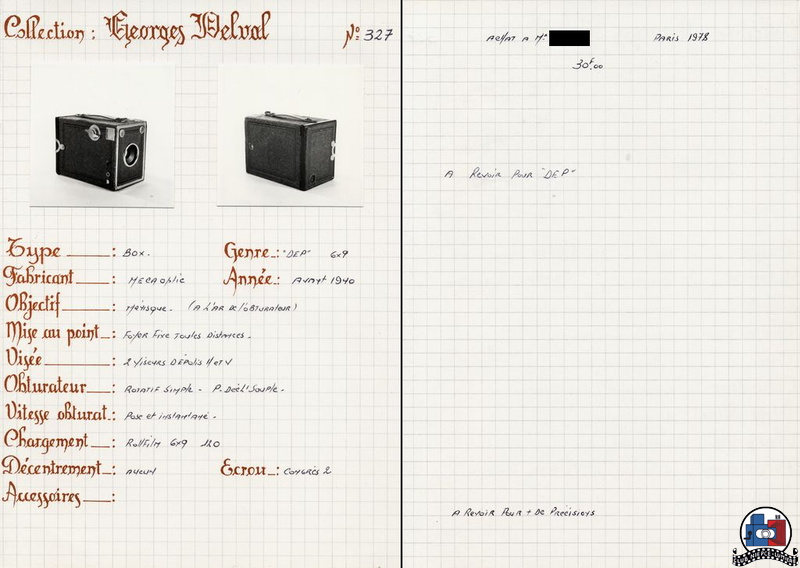 Collection : Georges Delval
No 327
Type : Box.
Genre : "DEP" 6x9
Fabricant : MECAOptic
Année : Avant 1940
Objectif : Ménisque. (A L'AR de l'obturateur)
Mise au point : Foyer Fixe Toutes Distances.
Visée : 2 Viseurs DÉPOLIS H et V
Obturateur : Rotatif Simple - P. Décl' Souple.
Vitesse obturat. : Pose et instantané.
Chargement : Rollfilm 6x9 120
Décentrement : aucun
Ecrou : Congrès 2
Accessoires :
ACHAT A Mr
PARIS 1978
30F,00
A Revoir Pour "DEP"
A Revoir Pour + De Précisions